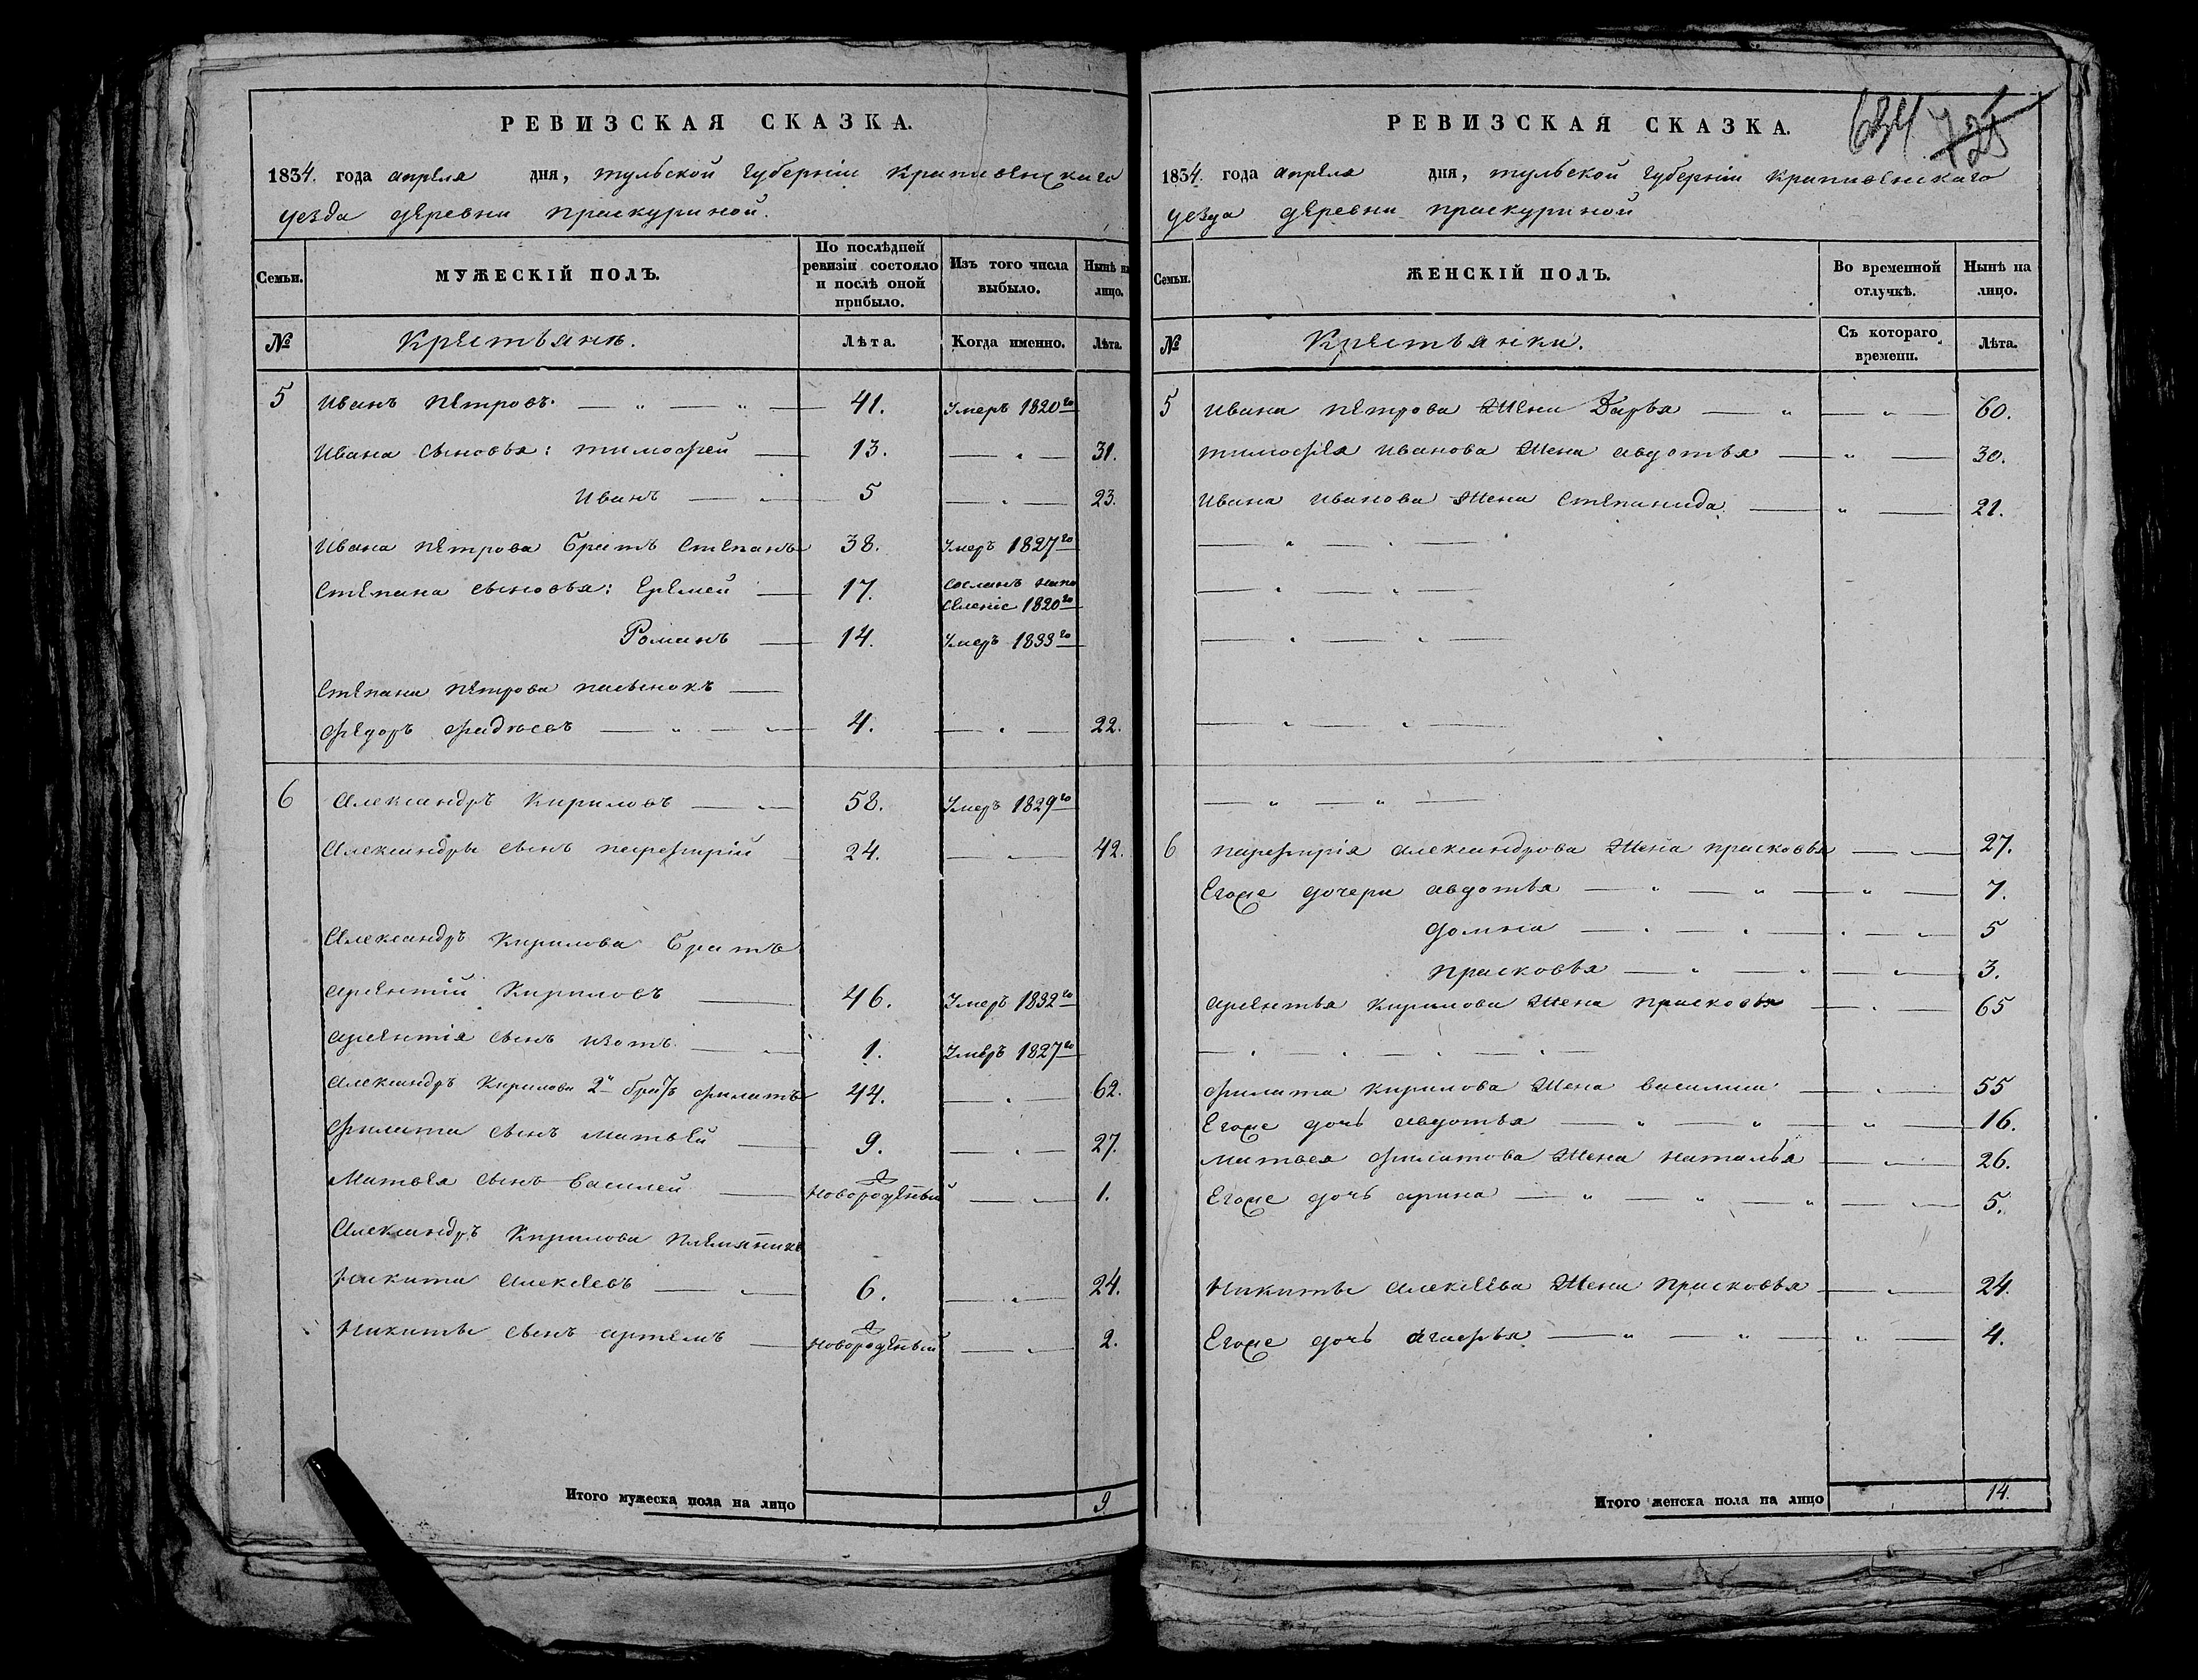 РЕВИЗСКАЯ СКАЗКА.
1834. года апреля дня, тульской губернiи крапивенскаго
уезда деревни праскуриной.
Семьи.
МУЖЕСКІЙ ПОЛЪ.
По послѣдней ревизіи состояло и послѣ оной прибыло.
Изъ того числа выбыло.
Нынѣ на лицо.
№
Крестьяне.
Лѣта.
Когда именно.
Лѣта.
5 Иванъ Петровъ. 41. Умеръ 1820го
Ивана сыновья: тимофей 13. 31.
Иванъ 5 23.
Ивана петрова братъ степанъ 38. Умеръ 1827го
Степана сыновья: Еремей 17. сосланъ напо
селенiе 1820го
Романъ 14. Умеръ 1833го
Степана петрова пасынокъ
федоръ фадѣевъ 4. 22.
6 Александръ Кириловъ 58. Умеръ 1829го
Александра сынъ 24. 42.
Александръ Кирилова братъ
Кириловъ 46. Умеръ 1832го
сынъ изотъ 1. Умеръ 1827го
Александръ Кирилова 2й братъ филатъ 44. 62.
филата сынъ матвей 9. 27.
Матвея сынъ василей новорожденный 1.
Александръ Кирилова племянникъ
никита алексеевъ 6. 24.
Никиты сынъ артемъ новорожденный 2.
Итого мужеска пола на лицо 9
РЕВИЗСКАЯ СКАЗКА.
634 725
1834. года апреля дня, тульской губернiи крапивенскаго
уезда деревни праскуриной
Семьи.
ЖЕНСКІЙ ПОЛЪ.
Во временной отлучкѣ.
Нынѣ на лицо.
№
Крестьянки.
Съ котораго времени.
Лѣта.
5 Ивана петрова жена Дарья 60.
тимофея иванова жена авдотья 30.
Ивана иванова жена степанида 21.
6 александрова жена прасковья 27.
Егоже дочери авдотья 7.
домна 5
прасковья 3.
Кирилова жена прасковья 65
филата кирилова жена василиса 55
Егоже дочь авдотья 16.
матвея филатова жена наталья 26.
Егоже дочь арина 5.
Никиты алексеева жена прасковья 24.
Егоже дочь агафья 4.
Итого женска пола на лицо 14.